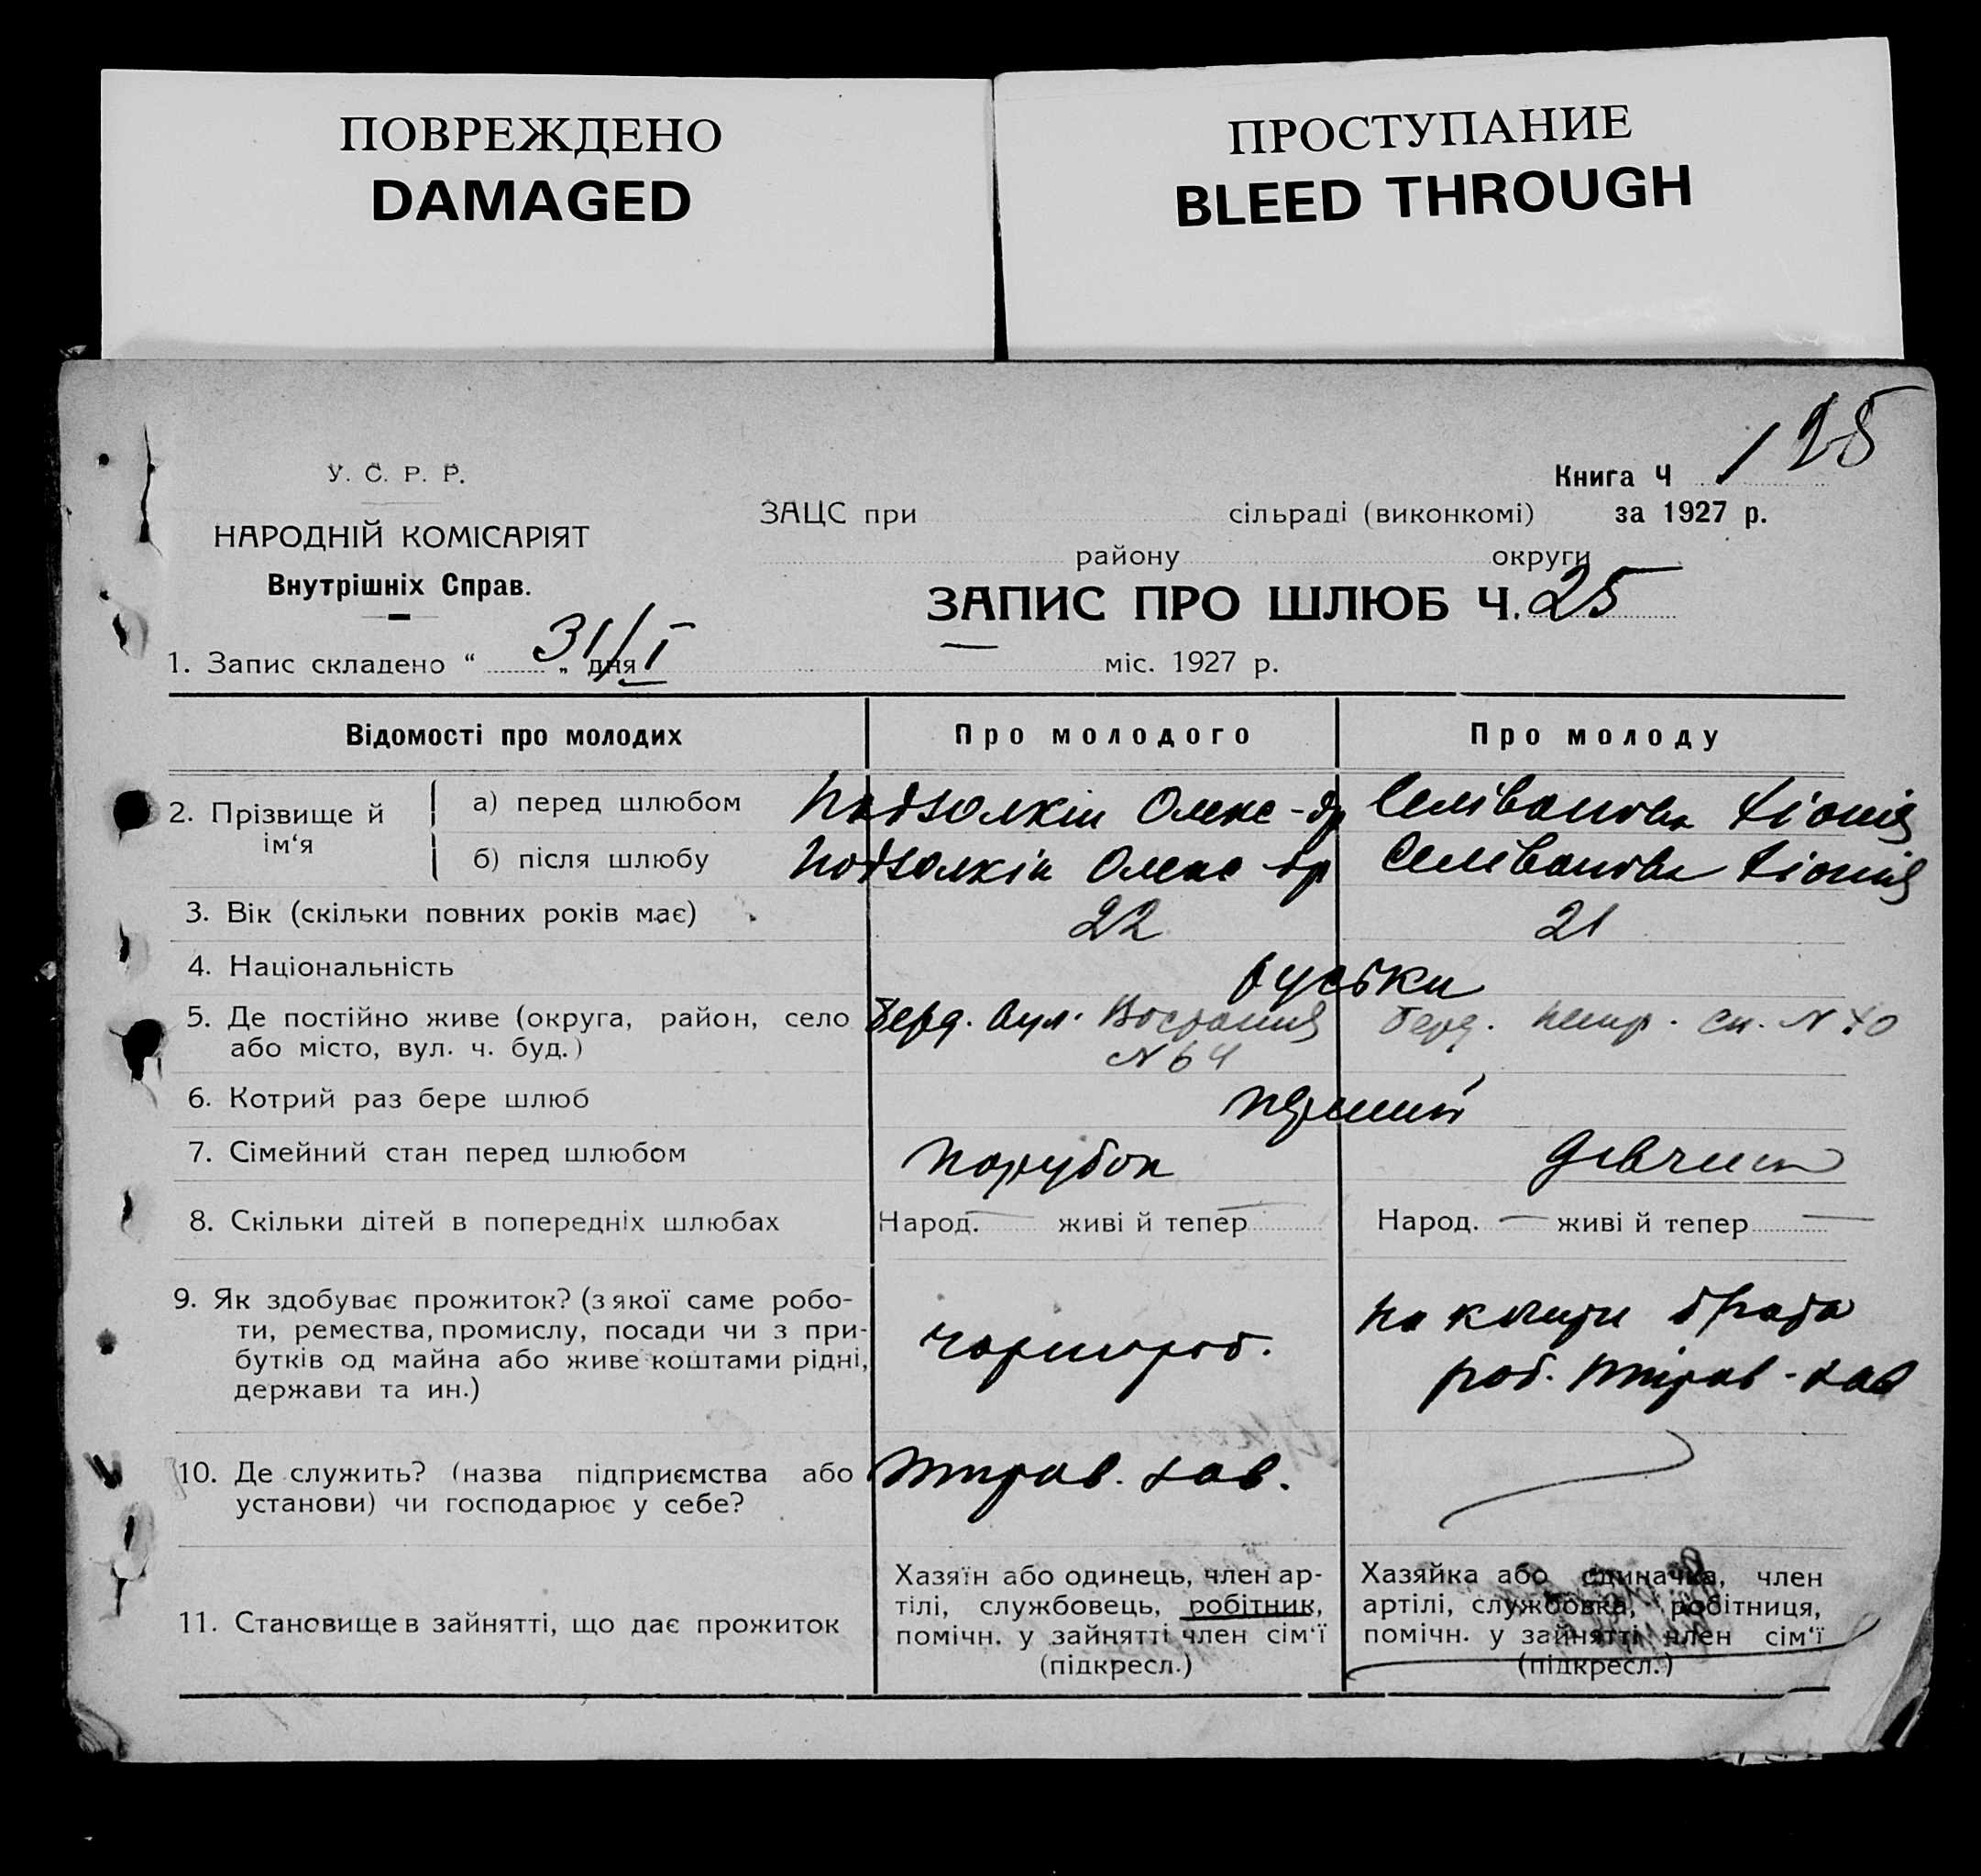 ПОВРЕЖДЕНО
DAMAGED
ПРОСТУПАНИЕ
BLEED THROUGH
125
У. С. Р. Р.
НАРОДНІЙ КОМІСАРІЯТ
Внутрішніх Справ.
Книга Ч
ЗАЦС при сільраді (виконкомі) за 1927 р.
району округи
ЗАПИС ПРО ШЛЮБ Ч. 25
1. Запис складено “ 31/I „ дня міс. 1927 р.
Відомості про молодих Про молодого Про молоду
2. Прізвище й ім‘я
а) перед шлюбом Подзолкін Олекс-др Селіванова
б) після шлюбу Подзолкін Олекс-др Селіванова
3. Вік (скільки повних років має) 22 21
4. Національність руські
5. Де постійно живе (округа, район, село Берд. вул. Восстания Берд. №40
або місто, вул. ч. буд.) №64
6. Котрий раз бере шлюб перший
7. Сімейний стан перед шлюбом парубок дівчина
8. Скільки дітей в попередніх шлюбах Народ. — живі й тепер — Народ. — живі й тепер —
9. Як здобуває прожиток? (з якої саме робо-
ти, ремества, промислу, посади чи з при-
бутків од майна або живе коштами рідні,
держави та ин.)
чорнороб.
на кошти брата
роб. зав
10. Де служить? (назва підприємства або
установи) чи господарює у себе?
зав.
11. Становище в зайнятті, що дає прожиток
Хазяїн або одинець, член ар-
тілі, службовець, робітник,
помічн. у зайнятті член сім‘ї
(підкресл.)
Хазяйка або одиначка, член
артілі, службовка, робітниця,
помічн. у зайнятті член сім‘ї
(підкресл.)